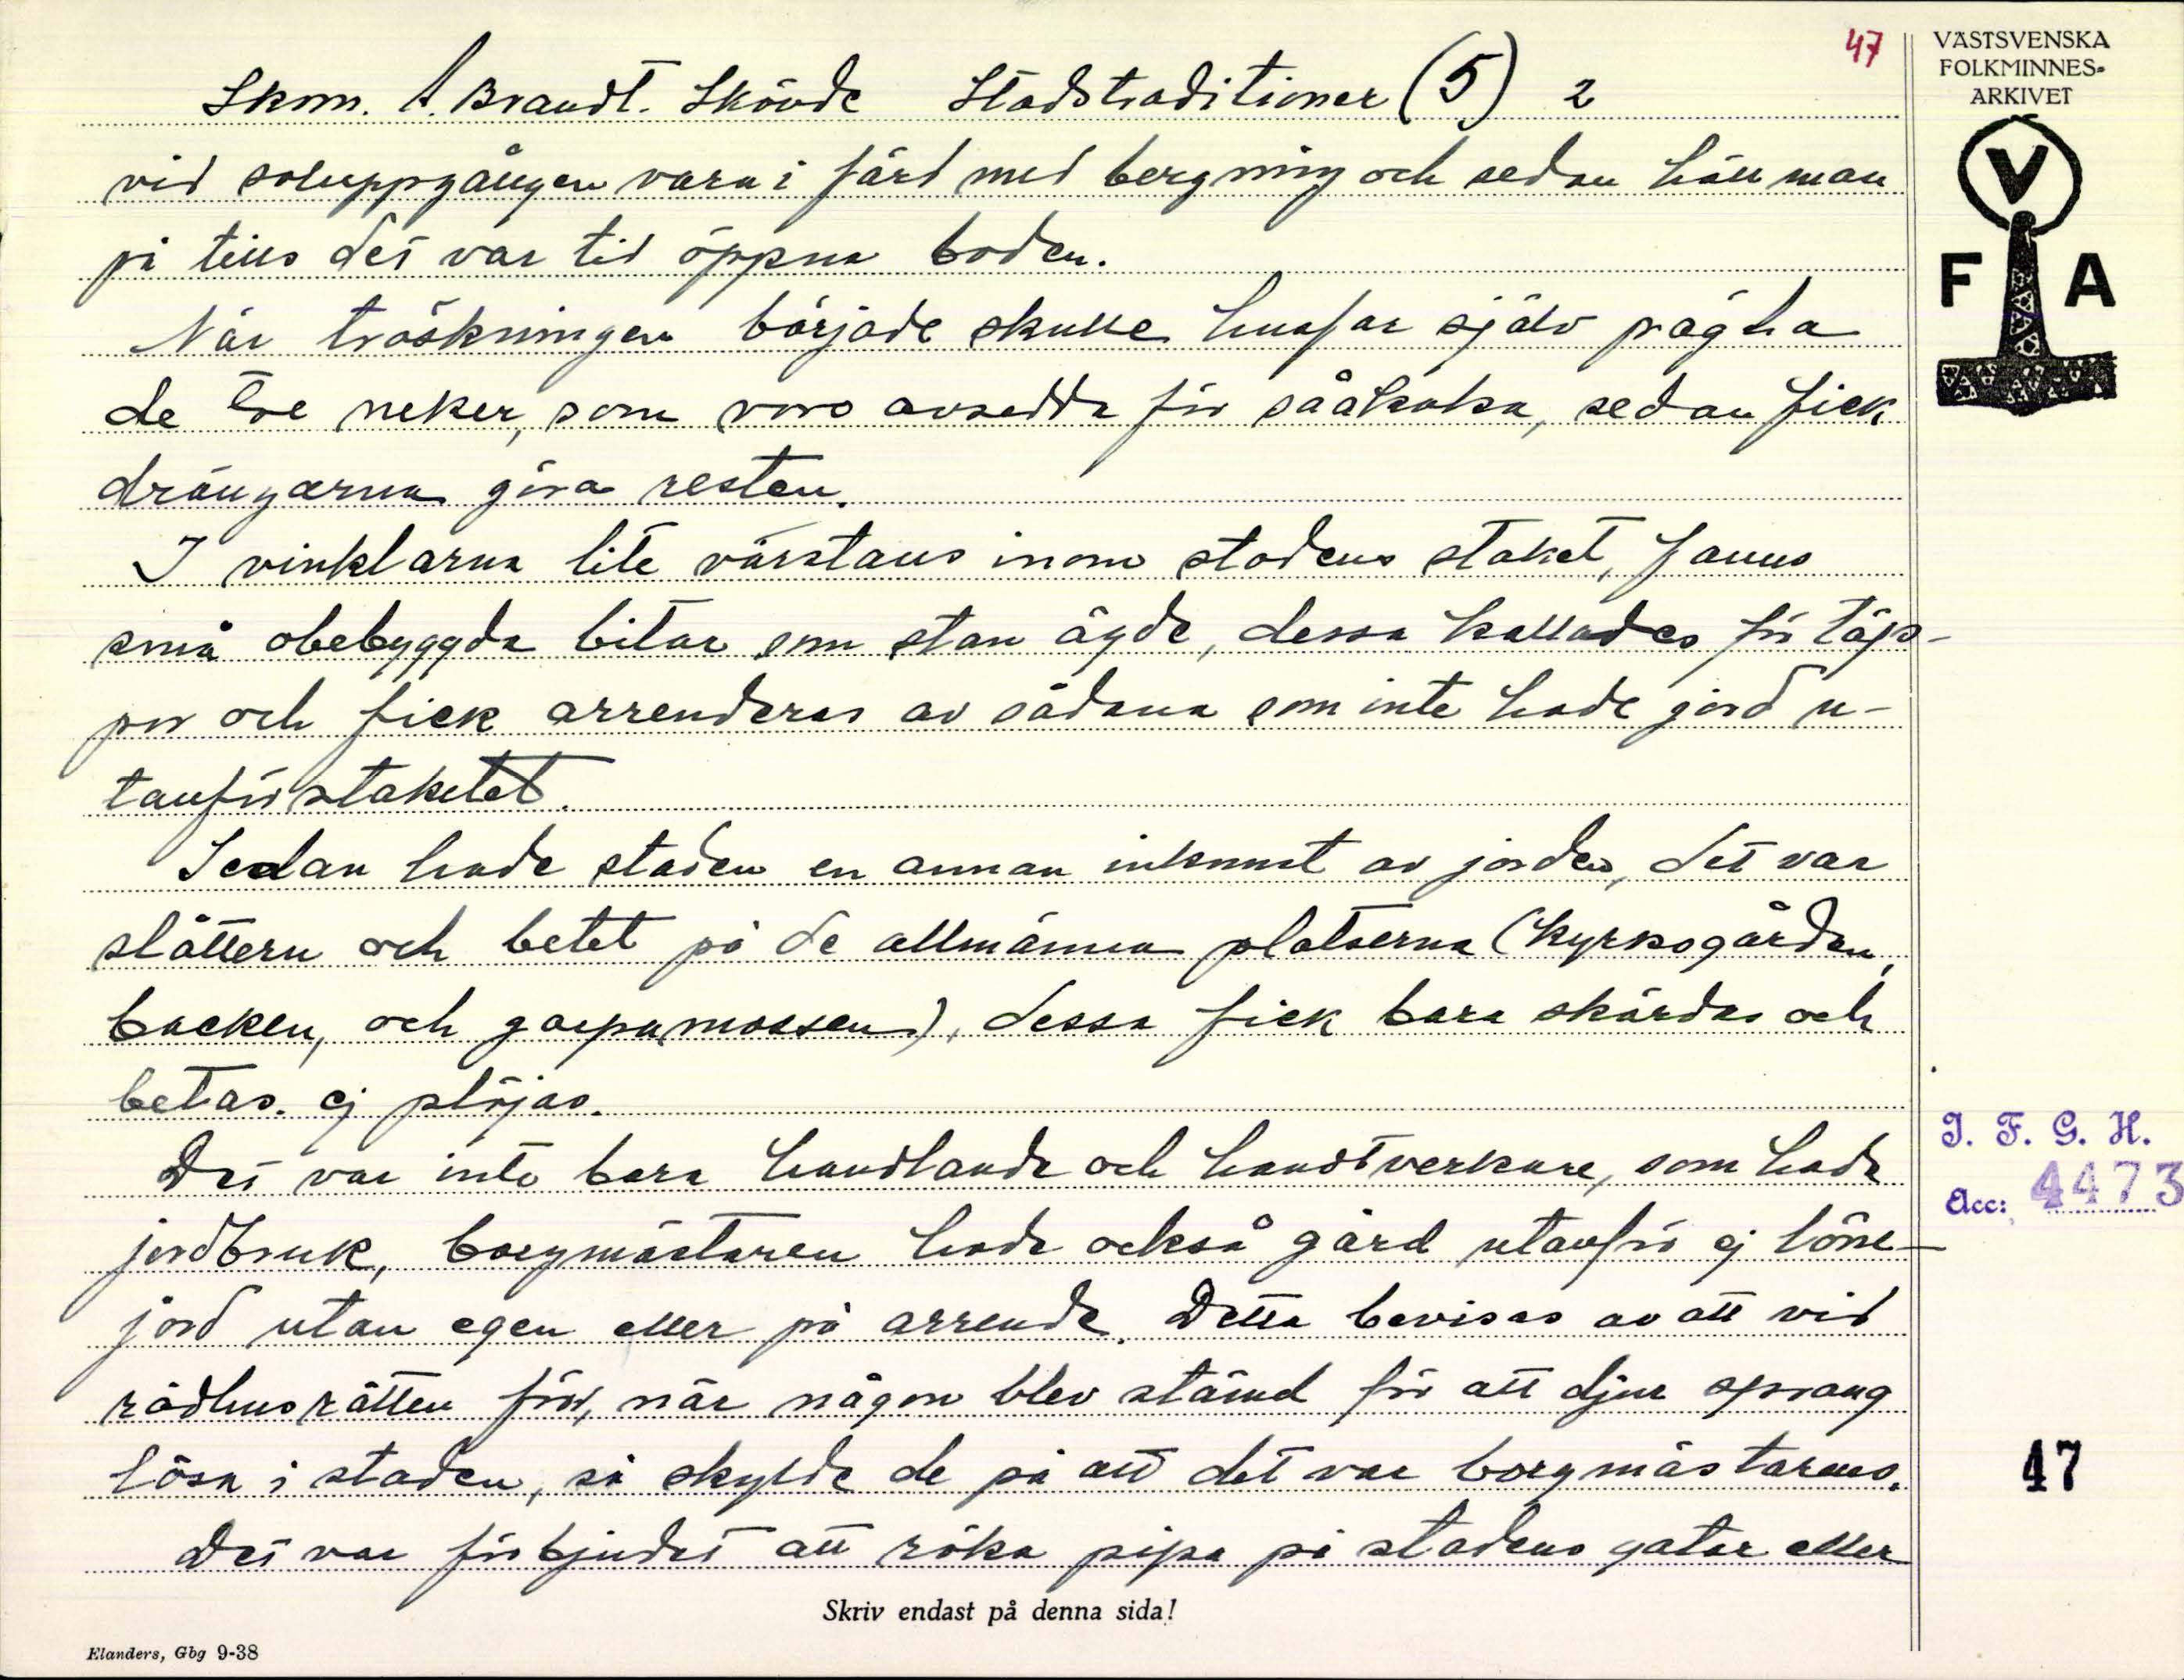 47
VÄSTSVENSKA
FOLKMINNES-
ARKIVET
V
F A
Skom. A. Brandt. Skövde Stadstraditioner (5) 2
vid soluppgången vara i färd med bergning och sedan höll man
på tills det var tid öppna boden.
När tröskningen började skulle husfar själv
de tre neker, som voro avsedda för såakaka, sedan fick
drängarna göra resten.
I vinklarna lite varstans inom stadens staket, fanns
små obebyggda bitar som stan ägde, dessa kallades för täp-
por och fick arrenderas av sådana som inte hade jord u-
tanför staketet.
Sedan hade staden en annan inkomst av jorden, det var
slåttern och betet på de allmänna platserna (kyrkogården,
backen, och garpamossen), dessa fick bara skördas och
betas. ej plöjas.
Det var inte bara handlande och handtverkare, som hade
jordbruk, borgmästaren hade också gård utanför ej löne-
jord utan egen eller på arrende. Detta bevisas av att vid
rådhusrätten förr, när någon blev stämd för att djur sprang
lösa i staden, så skyllde de på att det var borgmästarens.
Det var förbjudet att röka pipa på stadens gator eller
I. F. G. H.
Acc: 4473
47
Skriv endast på denna sida!
Elanders, Gbg 9-38